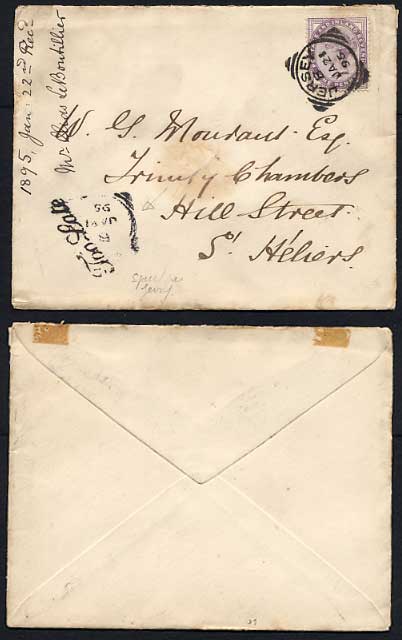 1895, Jan: 22nd Recd
Mr Chas Le Boutillier
JERSEY
B
JA 21
95
W. G. Mourant Esq.
Trinity Chambers
Hill Street
St Héliers
Too Late
JA 21
95